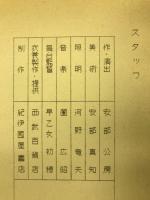 スタッフ
作・演出 安部公房
美術 安部真知
照明 河野竜夫
音楽 圍広昭
舞台監督 早乙女初穂
衣裳製作・提供 西武百貨店
制作 紀伊國屋書店